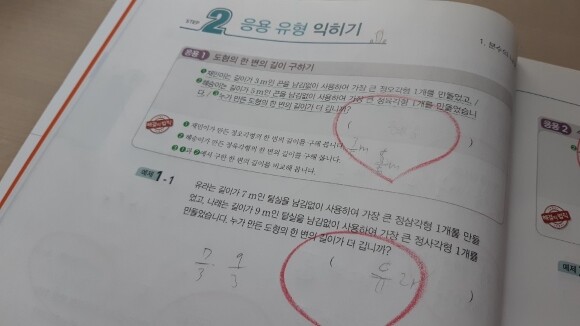 STEP 2 응용 유형 익히기
1. 분수의
응용 1 도형의 한 변의 길이 구하기
❶재민이는 길이가 3 m인 끈을 남김없이 사용하여 가장 큰 정오각형 1개를 만들었고,
❷혜승이는 길이가 5 m인 끈을 남김없이 사용하여 가장 큰 정육각형 1개를 만들었습니
다. ❸누가 만든 도형의 한 변의 길이가 더 깁니까?
( )
해결의 법칙
❶ 재민이가 만든 정오각형의 한 변의 길이를 구해 봅니다.
❷ 혜승이가 만든 정육각형의 한 변의 길이를 구해 봅니다.
❸ ❶과 ❷에서 구한 한 변의 길이를 비교해 봅니다.
응용 2
예제 1-1
유라는 길이가 7 m인 털실을 남김없이 사용하여 가장 큰 정삼각형 1개를 만들
었고, 나래는 길이가 9 m인 털실을 남김없이 사용하여 가장 큰 정사각형 1개를
만들었습니다. 누가 만든 도형의 한 변의 길이가 더 깁니까?
( )
7/3 9/3
예제